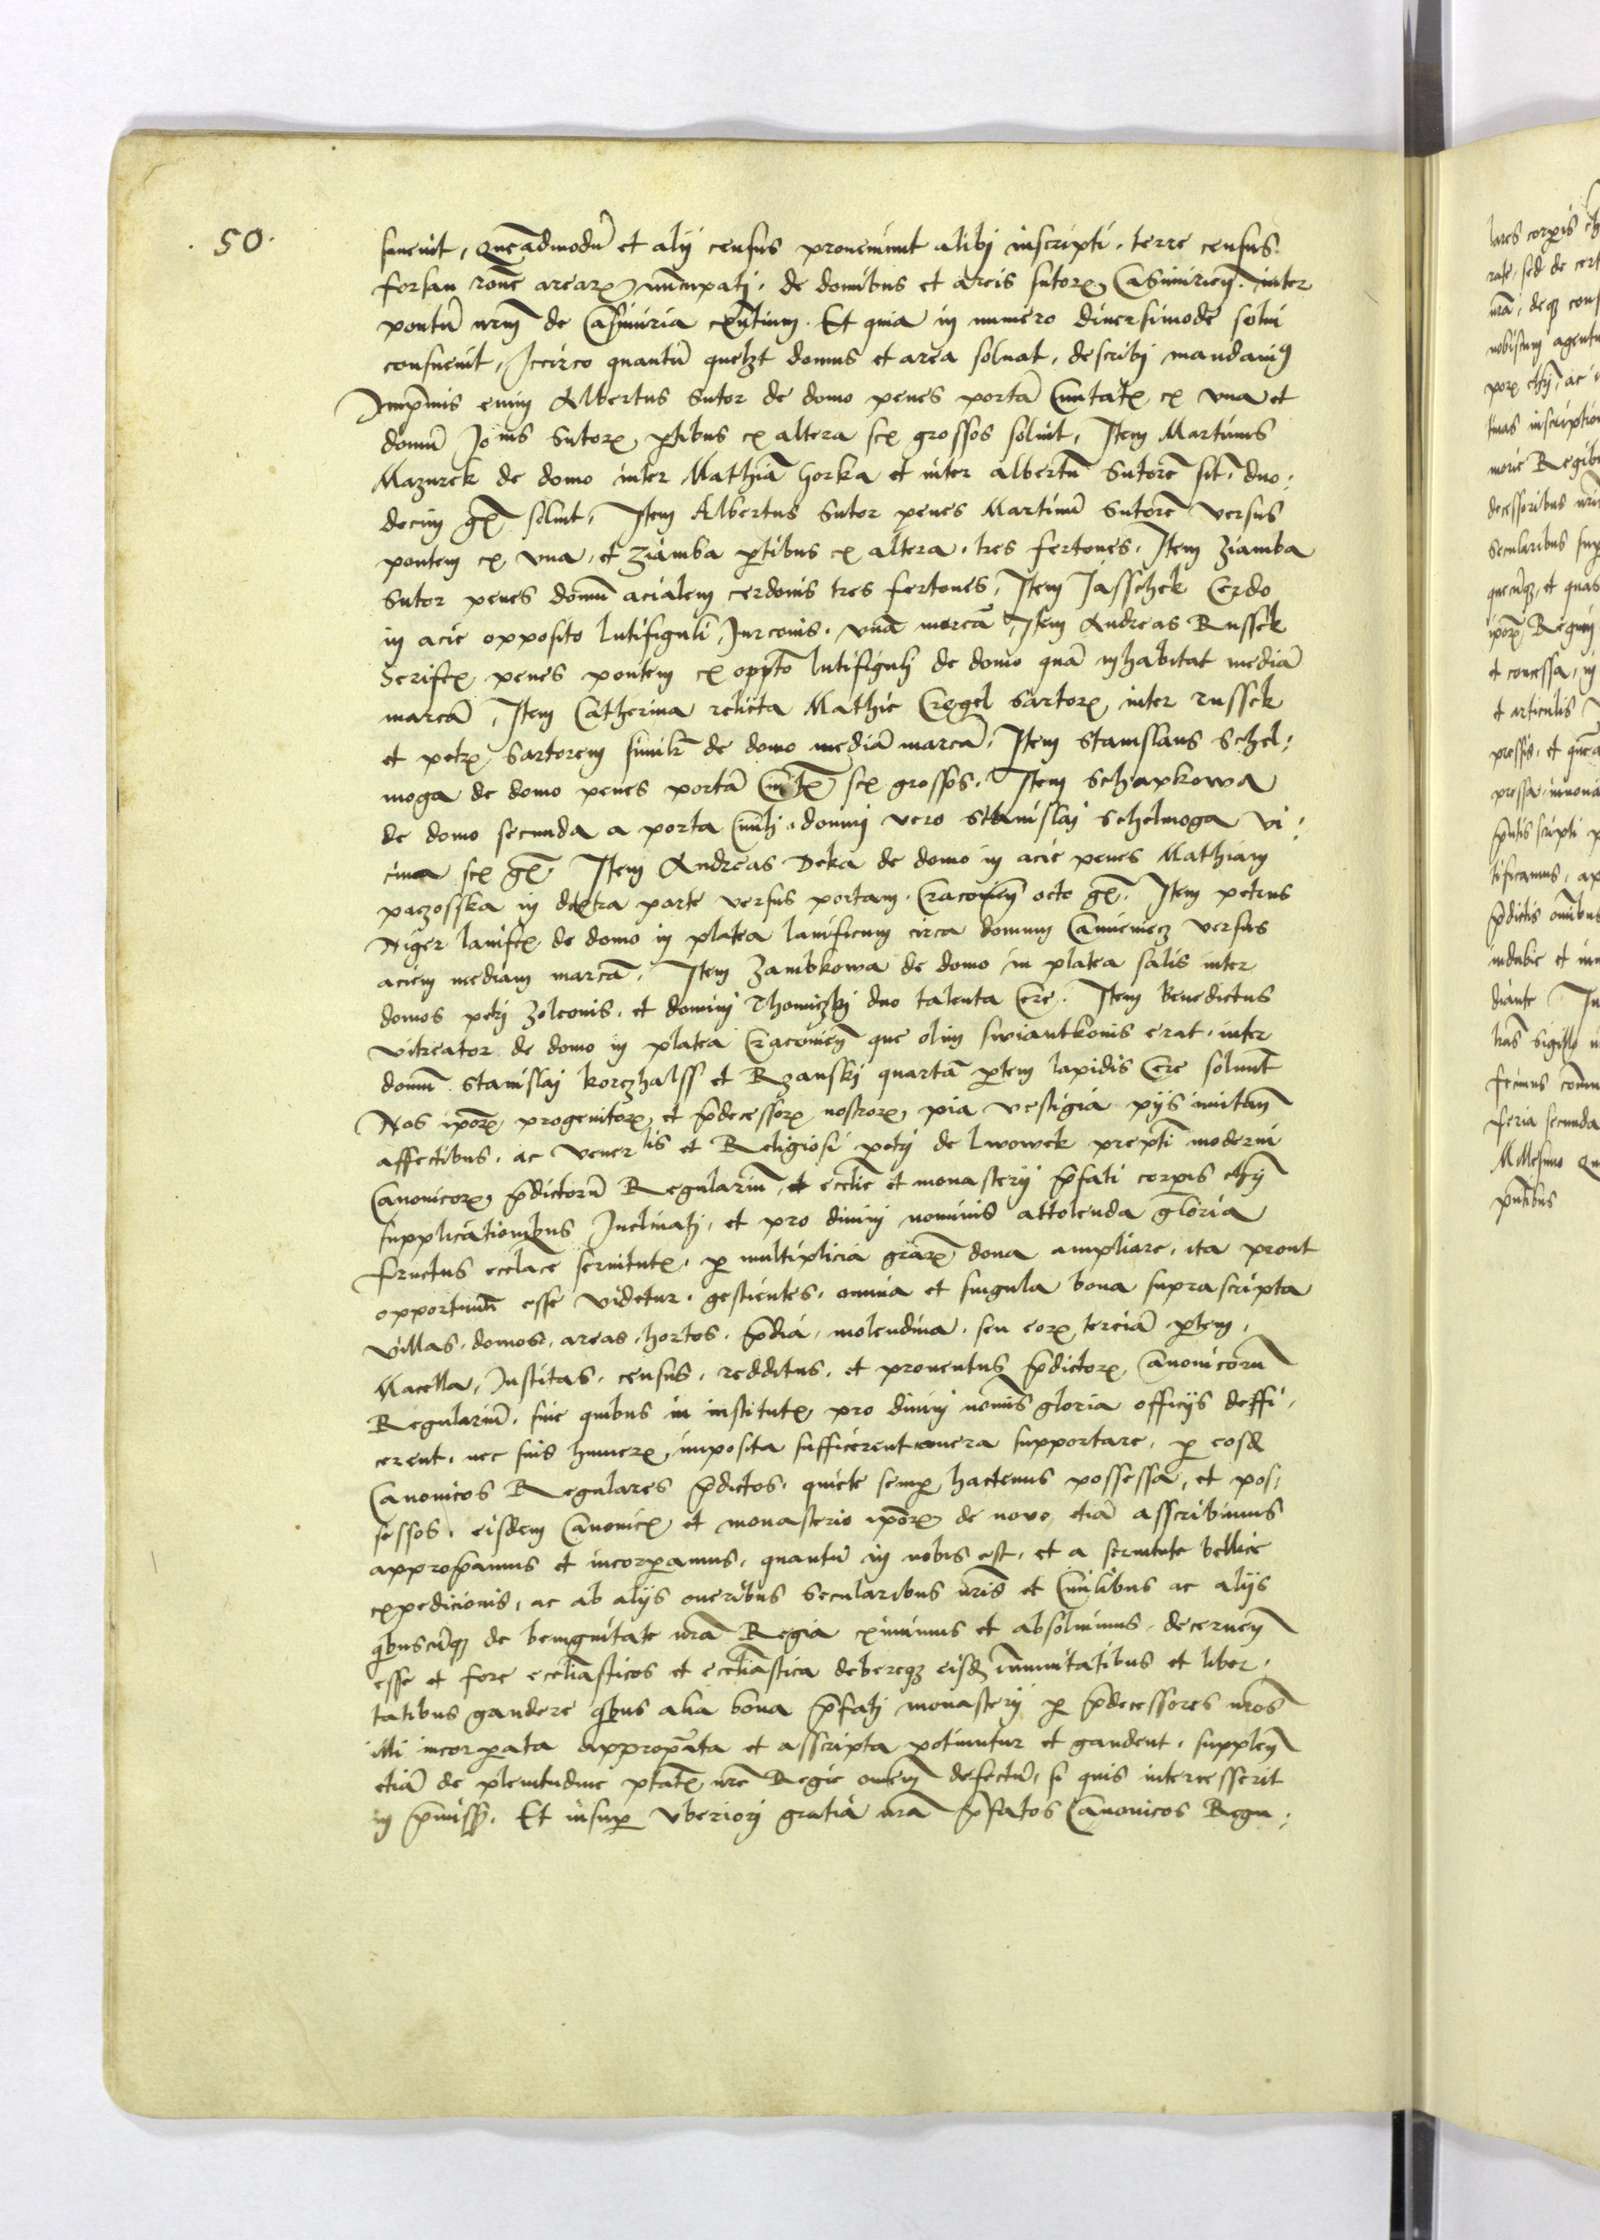 .50.
sueuit, Queadmodũ et alij census proueniunt alibj inscripti. terre census
forsan roñe arearꝝ nũcupatj. de domibus et areis sutorꝝ Casimirieñ. inter
pontũ nrm̃ de Casimiria exñtium. Et quia in numero diuersimode solui
consueuit, Jccirco quantũ quelꝫt domus et area soluat, describj mandauimꝰ
Jmp̃mis enim Albertus Sutor de domo penes portã Ciuitatꝭ ex vna et
domũ Joñis Sutorꝭ ꝑtibus ex altera sex grossos soluit, Jtem Martinus
Mazurek de domo inter Mathiã Gorka et inter albertũ Sutorẽ sit̃. duo:
decim gꝭ soluit, Jtem Albertus Sutor penes Martinũ Sutorẽ versus
pontem ex vna, et Ziamba ꝑtibus ex altera. tres fertones, Jtem Ziamba
Sutor penes domũ acialem cerdonis tres fertones, Jtem Jasschek Cerdo
in acie opposito lutifiguli Jurconis. vnã marcã, Jtem Andreas Russek
Serifex penes pontem ex oppto lutifigulj de domo quã inhabitat mediã
marcã, Jtem Catherina relicta Mathie Cregel Sartorꝭ inter russek
et petrꝝ Sartorem similr̃ de domo mediã marcã. Jtem Stanislaus Schel:
moga de domo penes portã sex grossos. Jtem Schapkowa
de domo secunda a porta domuj vero Stanislaj Schelmoga vi:
cina sex gꝭ. Jtem Andreas Deka de domo in acie penes Mathiam
paczosska in dextra parte versus portam. Cracouieñ octo gꝭ. Jtem petrus
Niger lanifex de domo in platea lanificum circa domum Camieniecz versus
aciem mediam marcã. Jtem Zambkowa de domo in platea salis inter
domos petrj Zolconis. et dominj Thomiczkj duo talenta Cere. Jtem Benedictus
vitreator de domo in platea Cracouieñ que olim swiantkonis erat. inter
domũ Stanislaj korczhalss et Rzanskj quartã ꝑtem lapidis Cere soluunt
Nos ip̃orꝝ progenitorꝝ et p̃decessorꝝ nostrorꝝ pia vestigia pijs imitam̃
affectibus. ac vener lis et Religiosi petrj de lwowek prep̃ti moderni
Canonicorꝝ p̃dictorũ Regulariũ, et ecclie et monasterij p̃fati corꝑis chrj̃
supplicationibus Jnclinatj, et pro diuinj nominis attolenda gloria
fructus ecclace seruitutꝭ, ꝑ multiplicia grãrꝝ dona ampliare, ita prout
opportunũ esse videtur. gestientes. omnia et singula bona suprascripta
villas. domos. areas. hortos. p̃dia. molendina. seu eorꝝ terciã ꝑtem.
Macella, Jnstitas. census. redditus. et prouentus p̃dictorꝝ Canonicorũ
Regulariũ. sine quibus in institutꝭ pro diuinj nominis gloria officijs deffi.
cerent. nec suis humerꝭ imposita sufficerent onera supportare, ꝑ eosd̃
Canonicos Regulares p̃dictos. quiete semꝑ hactenus possessa, et pos:
sessos. eisdem Canonicꝭ et monasterio ip̃orꝝ de nouo etiã asscribimus
approp̃amus et incorꝑamus. quantũ in nobis est, et a seruitute bellice
expedicionis, ac ab alijs oneribus Secularibus nr̃is et Ciuilibus ac alijs
qbuscũqꝫ de benignitate nr̃a Regia eximimus et absoluimus. deceruen̄
esse et fore eccliasticos et eccliastica debereqꝫ eisd̃ im̃unitatibus et liber.
tatibus gaudere qbus alia bona p̃fatj monasterij ꝑ p̃decessores nr̃os
illi incorꝑata appropata et asscripta potiuntur et gaudent. supplen̄
etiã de plenitudine ptatꝭ nr̃e Regie om̃em defectũ, si quis intercesserit
in p̃missꝭ. Et insuꝑ vberiorj gratiã nr̃a p̃fatos Canonicos Regu:
lares corꝑis
rate, sed de cert
nr̃a, deqꝫ cons
nobiscum agentu
tuas inscription
morie Regib
decessoribus nr̃is
Secularibus sup
quecũqꝫ, et quas
ip̃orꝝ Regum
et concessa, in
et articulis
pressis, et quẽa
pressa innoua
tificamus, ap
p̃dictis om̃ibus
indubie et in
diante Ju
lras sigillo
fecimus com̃u
feria secunda
Millesimo Qu
pñtibus